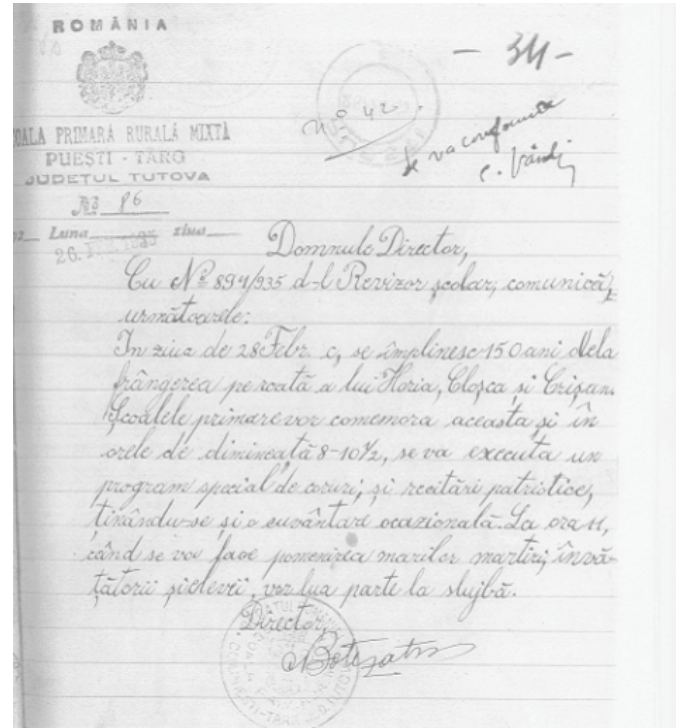 ROMÂNIA
- 34 -
No 42.
se va conforma
ȘCOALA PRIMARĂ RURALĂ MIXTĂ
PUEȘTI - TÂRG
JUDEȚUL TUTOVA
No 86
Luna ziua
26. 1935
Domnule Director,
Cu No 894/935 d-l Revizor școlar, comunică,
următoarele:
In ziua de 28 Febr. c, se împlinesc 150 ani dela
frângerea pe roată a lui Horia, Cloșca și Crișan.
Școalele primare vor comemora aceasta și în
orele de dimineață 8-10½, se va executa un
program special de coruri, și recitări patristice,
ținându-se și o cuvântare ocazională. La ora 11,
când se va face pomenirea marilor martiri, învă-
țătorii și elevii, vor lua parte la slujbă.
Director,
Botezatu